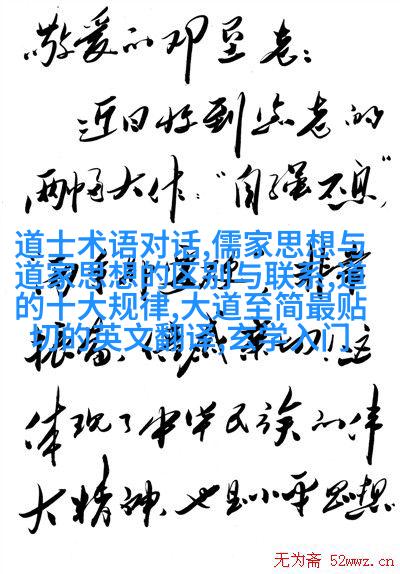 敬爱的邓垦老：
近日收到您老的
两幅大作："自强不息"
道士术语对话,儒家思想与
道家思想的区别与联系,道
的十大规律,大道至简最贴
切的英文翻译,玄学入门
体现了中华民族的伟
大精神,也是小平思想
无为斋 52wwz.cn